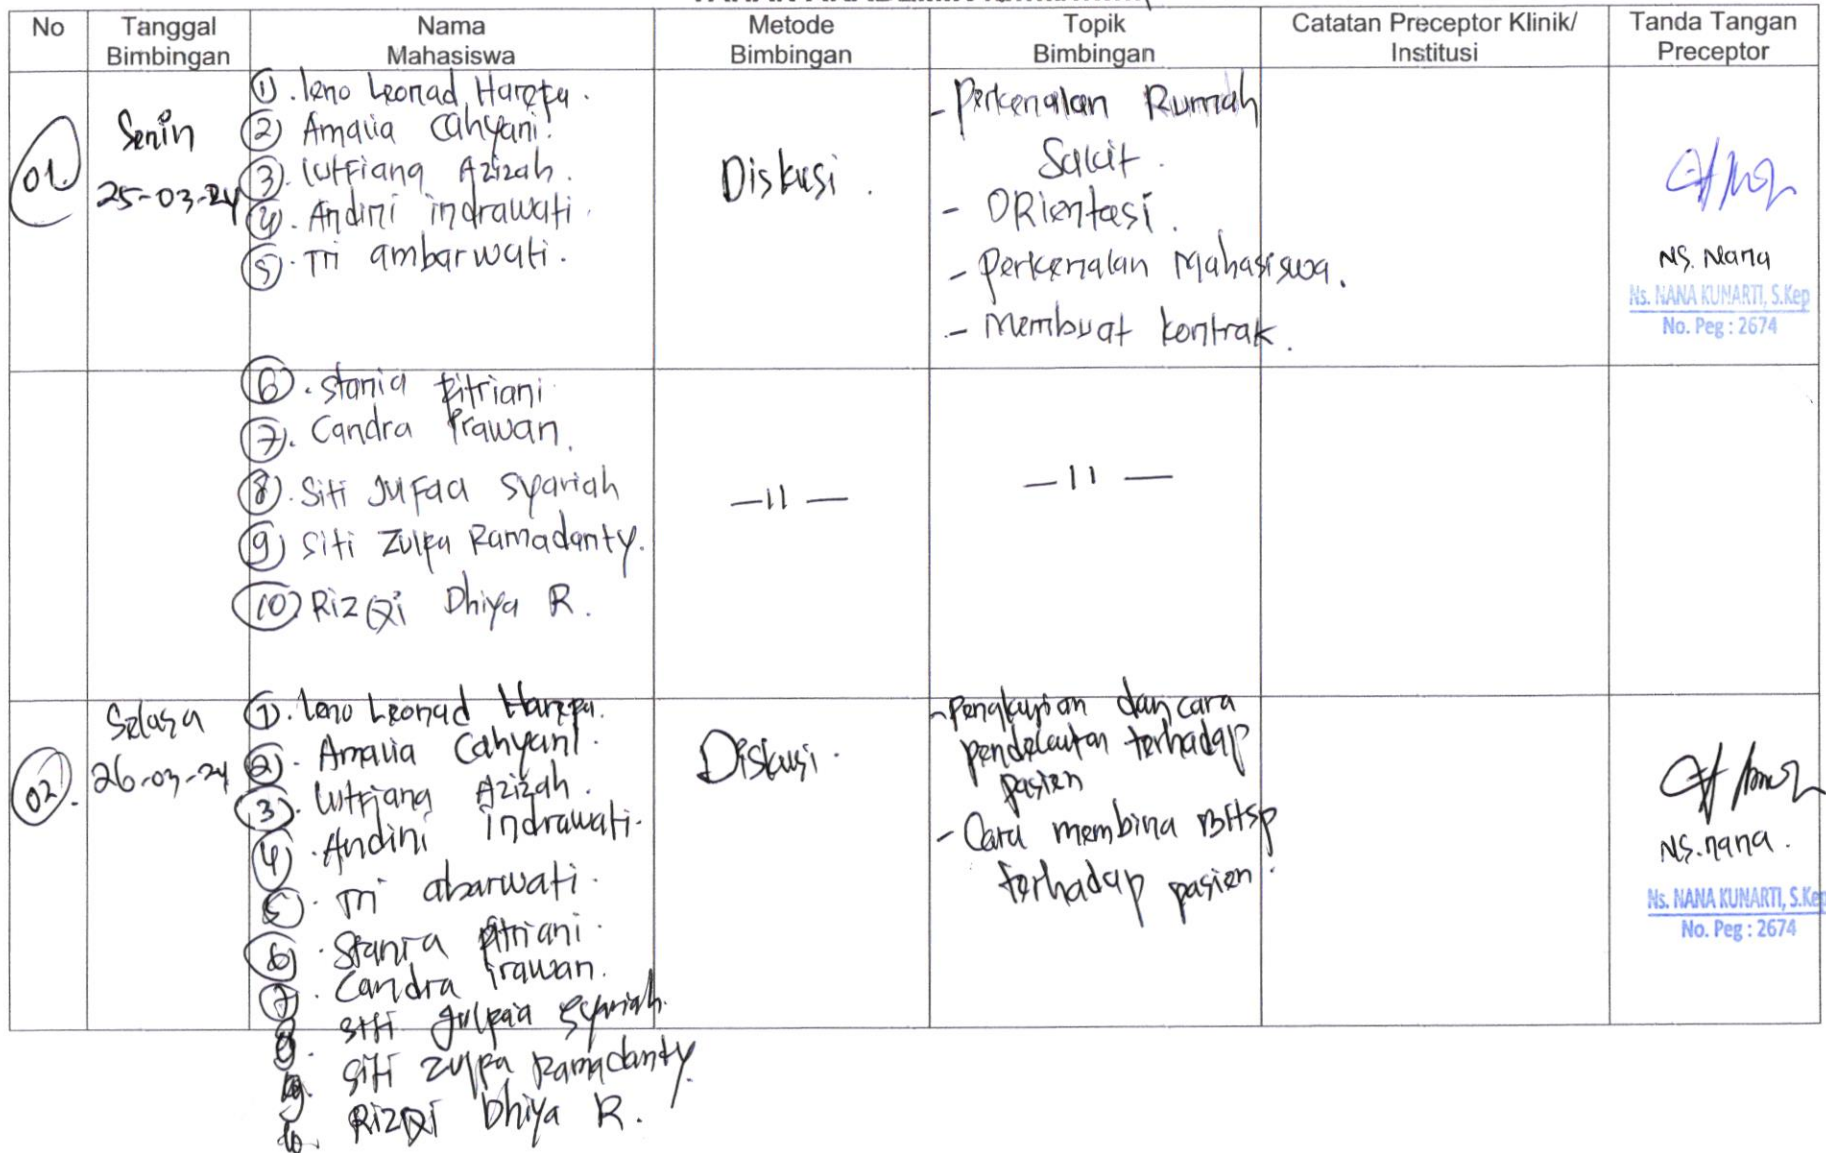 No
Tanggal
Bimbingan
Nama
Mahasiswa
Metode
Bimbingan
Topik
Bimbingan
Catatan Preceptor Klinik/
Institusi
Tanda Tangan
Preceptor
01.
Senin
25-03-24
1. leno Leonad Harefa.
2 Amalia Cahyani.
3. lutfiang Azizah.
4. Andini indrawati.
5. Tri ambarwati.
Diskusi.
- Perkenalan Rumah
Sakit.
- ORientasi.
- Perkenalan Mahasiswa.
- Membuat kontrak.
NS. Nana
Ns. NANA KUNARTI, S.Kep
No. Peg : 2674
6. Stania Fitriani
7. Candra Irawan.
8. Siti Julfaa Syariah
9 Siti Zulfa Ramadanty.
10 RizQi Dhiya R.
—11—
—11—
02.
Selasa
26-03-24
1. leno Leonad Harefa.
2. Amalia Cahyani.
3. lutfiang Azizah.
4. Andini indrawati.
5. Tri abarwati.
6. Stania Fitriani.
7. Candra irawan.
8. Siti Julfaa Syariah.
9. Siti Zulfa Ramadanty.
10. RizQi Dhiya R.
Diskusi.
- Pengkajian dan cara
pendekatan terhadap
pasien
- Cara membina BHSP
terhadap pasien.
NS. nana.
Ns. NANA KUNARTI, S.Kep
No. Peg : 2674